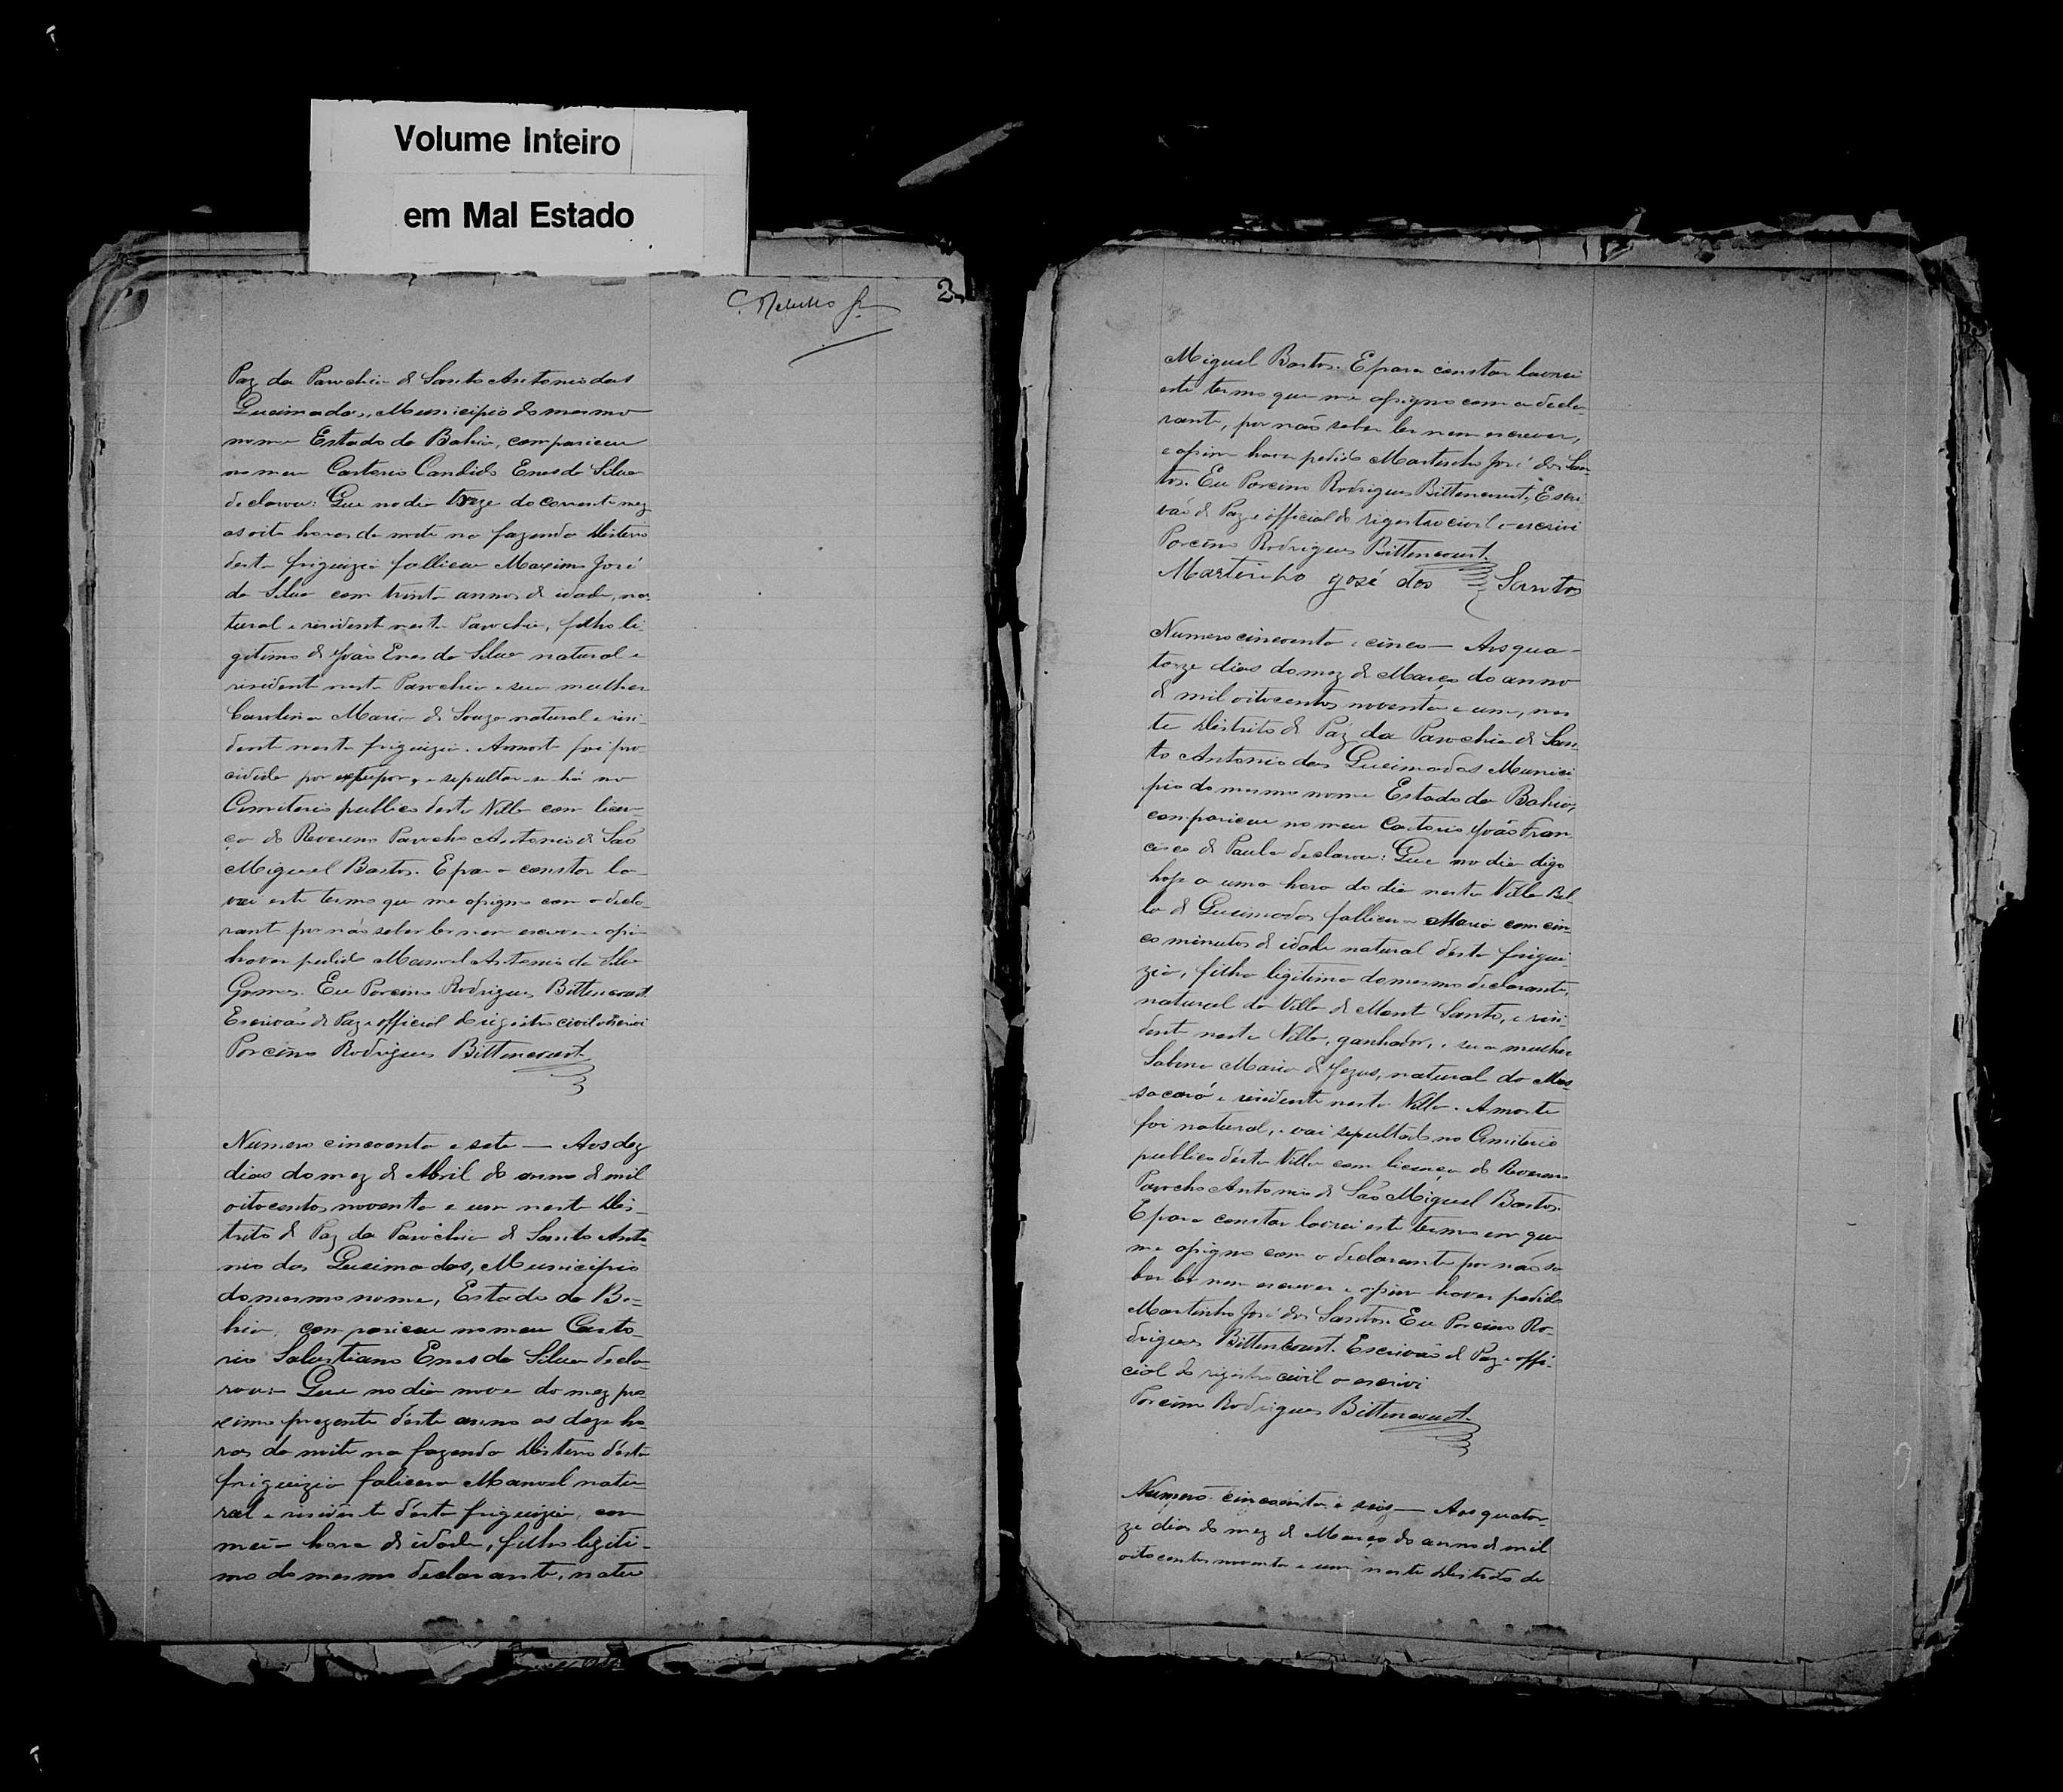 Volume Inteiro
em Mal Estado
2
Paz da Parochia de Santo Antonio das
Queimadas, Municipio do mesmo
nome Estado da Bahia, compareceu
no meu Cartorio Candido Enes da Silva
declarou: Que no dia treze do corrente mez
as oito horas da noite na fazenda Disterro
desta friguizia falliceu Maximo José
da Silva com trinta annos de idade, na
tural e risidente nesta Parochia, filho li
gitimo de João Enes da Silva natural e
risidente nesta Parochia e sua mulher
Carolina Maria de Souza natural e risi-
dente nesta friguizia. A morte foi pro
cidida por estupor, e sepultar-se há no
Cimiterio publico desta Villa com licen-
ça do Reverenº Parocho Antonio de São
Miguel Bastos. E para constar la-
vrei este termo que me assigno com o decla-
rante por não saber ler nem escrever e assim
haver pedido Manoel Antonio da Silva
Gomes. Eu Porcino Rodrigues Bittencourt.
Escrivão de Paz e official do rigistro civil o escrivi
Porcino Rodrigues Bittencourt.
Numero cincoenta e sete — Aos dez
dias do mez de Abril do anno de mil
oitocentos noventa e um neste Dis-
trito de Paz da Parochia de Santo Anto
nio das Queimadas, Municipio
do mesmo nome, Estado da Ba-
hia, compariceu no meu Carto-
rio Salustiano Enes da Silva decla-
rou:- Que no dia nove do mez pro
ximo prezente déste anno as doze ho
ras da noite na fazenda Disterro désta
friguizia faliceu Manoel natu-
ral e risidente désta friguizia, com
meia hora de idade, filho legiti-
mo do mesmo declarante, natu
Miguel Bastos. E para constar lavrei
este termo que me assigno com a decla-
rante, por não saber ler nem escrever,
e assim haver pedido Martinho José dos San-
tos. Eu Porcino Rodrigues Bittencourt, Escri
vão de Paz e official do rigistro civil o escrivi
Porcino Rodrigues Bittencourt.
Martinho José dos Santos
Numero cincoenta e cinco — Aos qua-
torze dias do mez de Março do anno
de mil oitocentos noventa e um, nes
te Distrito de Paz da Parochia de San
to Antonio das Queimadas Munici
pio do mesmo nome Estado da Bahia,
compariceu no meu Cartorio João Fran
cisco de Paula declarou: Que no dia digo
hoje a uma hora do dia nesta Villa Bel-
la de Queimadas falliceu Maria com cin-
co minutos de idade natural désta frigui-
zia, filha legitima do mesmo declarante,
natural da Villa de Mont Santo, e risi-
dente nesta Villa, ganhador, e sua mulher
Sabina Maria de Jezus, natural do Mas-
sacará e risidente nesta Villa. A morte
foi natural, e vai sepultada no Cimiterio
publico désta Villa com licença do Reverenº
Parocho Antonio de São Miguel Bastos.
E para constar lavrei este termo em que
me assigno com o declarante por não sa
ber ler nem escrever e assim haver pedido
Martinho José dos Santos. Eu Porcino Ro-
drigues Bittencourt. Escrivão de Paz e offi-
cial do rigistro civil o escrivi
Porcino Rodrigues Bittencourt.
Numero cincoenta e seis — Aos quator-
ze dias do mez de Março do anno de mil
oitocentos noventa e um neste Distrito de